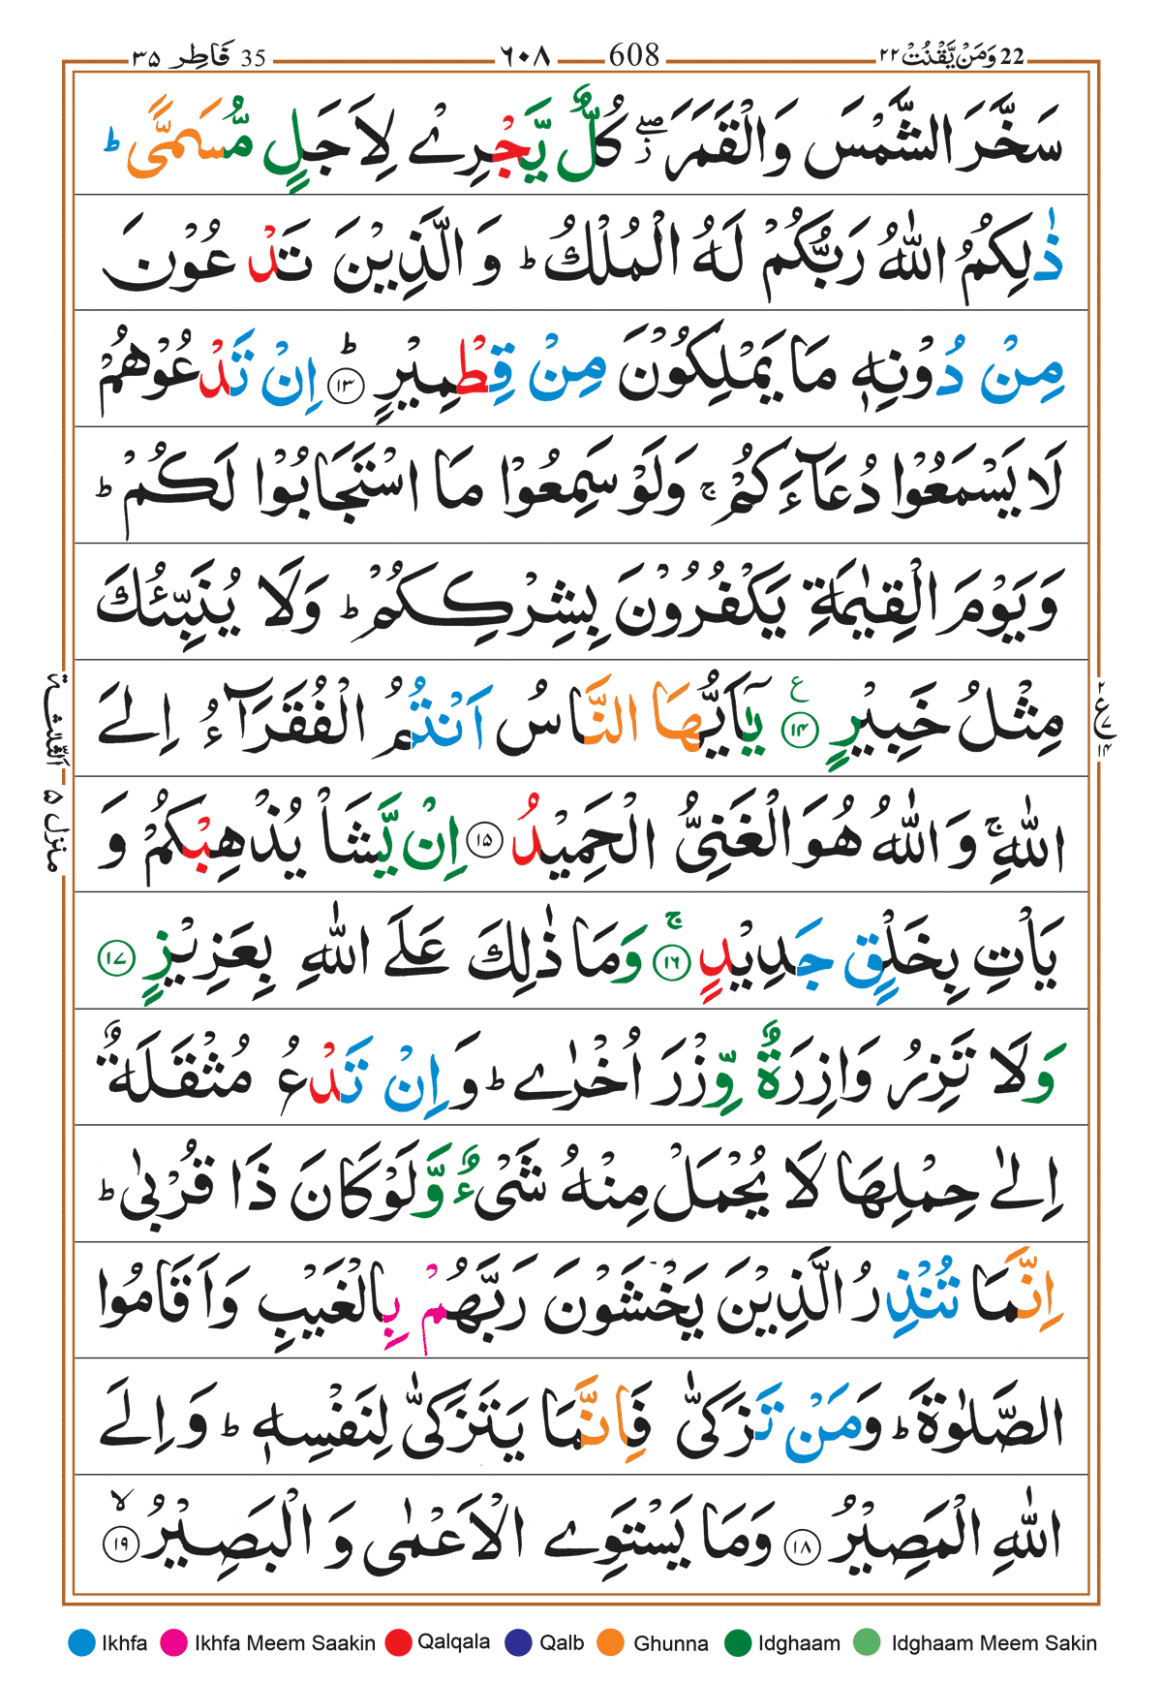 22 وَمَنْ يَّقْنُتْ ٢٢ 608 ٦٠٨ 35 فَاطِر ٣٥
سَخَّرَ الشَّمْسَ وَالْقَمَرَ ۖ٘ كُلٌّ يَّجْرِيْ لِاَجَلٍ مُّسَمًّى ؕ
ذٰلِكُمُ اللّٰهُ رَبُّكُمْ لَهُ الْمُلْكُ ؕ وَ الَّذِيْنَ تَدْعُوْنَ
مِنْ دُوْنِهٖ مَا يَمْلِكُوْنَ مِنْ قِطْمِيْرٍ ؕ ﴿۱۳﴾ اِنْ تَدْعُوْهُمْ
لَا يَسْمَعُوْا دُعَآءَكُمْ ۚ وَلَوْ سَمِعُوْا مَا اسْتَجَابُوْا لَكُمْ ؕ
وَيَوْمَ الْقِيٰمَةِ يَكْفُرُوْنَ بِشِرْكِكُمْ ؕ وَلَا يُنَبِّئُكَ
مِثْلُ خَبِيْرٍ ﴿۱۴﴾ ع يٰۤاَيُّهَا النَّاسُ اَنْتُمُ الْفُقَرَآءُ اِلَى
اللّٰهِ ۚ وَ اللّٰهُ هُوَ الْغَنِىُّ الْحَمِيْدُ ﴿۱۵﴾ اِنْ يَّشَاْ يُذْهِبْكُمْ وَ
يَاْتِ بِخَلْقٍ جَدِيْدٍ ۚ ﴿۱۶﴾ وَمَا ذٰلِكَ عَلَى اللّٰهِ بِعَزِيْزٍ ﴿۱۷﴾
وَلَا تَزِرُ وَازِرَةٌ وِّزْرَ اُخْرٰى ؕ وَ اِنْ تَدْعُ مُثْقَلَةٌ
اِلٰى حِمْلِهَا لَا يُحْمَلْ مِنْهُ شَىْءٌ وَّلَوْ كَانَ ذَا قُرْبٰى ؕ
اِنَّمَا تُنْذِرُ الَّذِيْنَ يَخْشَوْنَ رَبَّهُمْ بِالْغَيْبِ وَاَقَامُوا
الصَّلٰوةَ ؕ وَمَنْ تَزَكّٰى فَاِنَّمَا يَتَزَكّٰى لِنَفْسِهٖ ؕ وَ اِلَى
اللّٰهِ الْمَصِيْرُ ﴿۱۸﴾ وَمَا يَسْتَوِى الْاَعْمٰى وَ الْبَصِيْرُ ۙ ﴿۱۹﴾
منزل ۵
Ikhfa Ikhfa Meem Saakin Qalqala Qalb Ghunna Idghaam Idghaam Meem Sakin